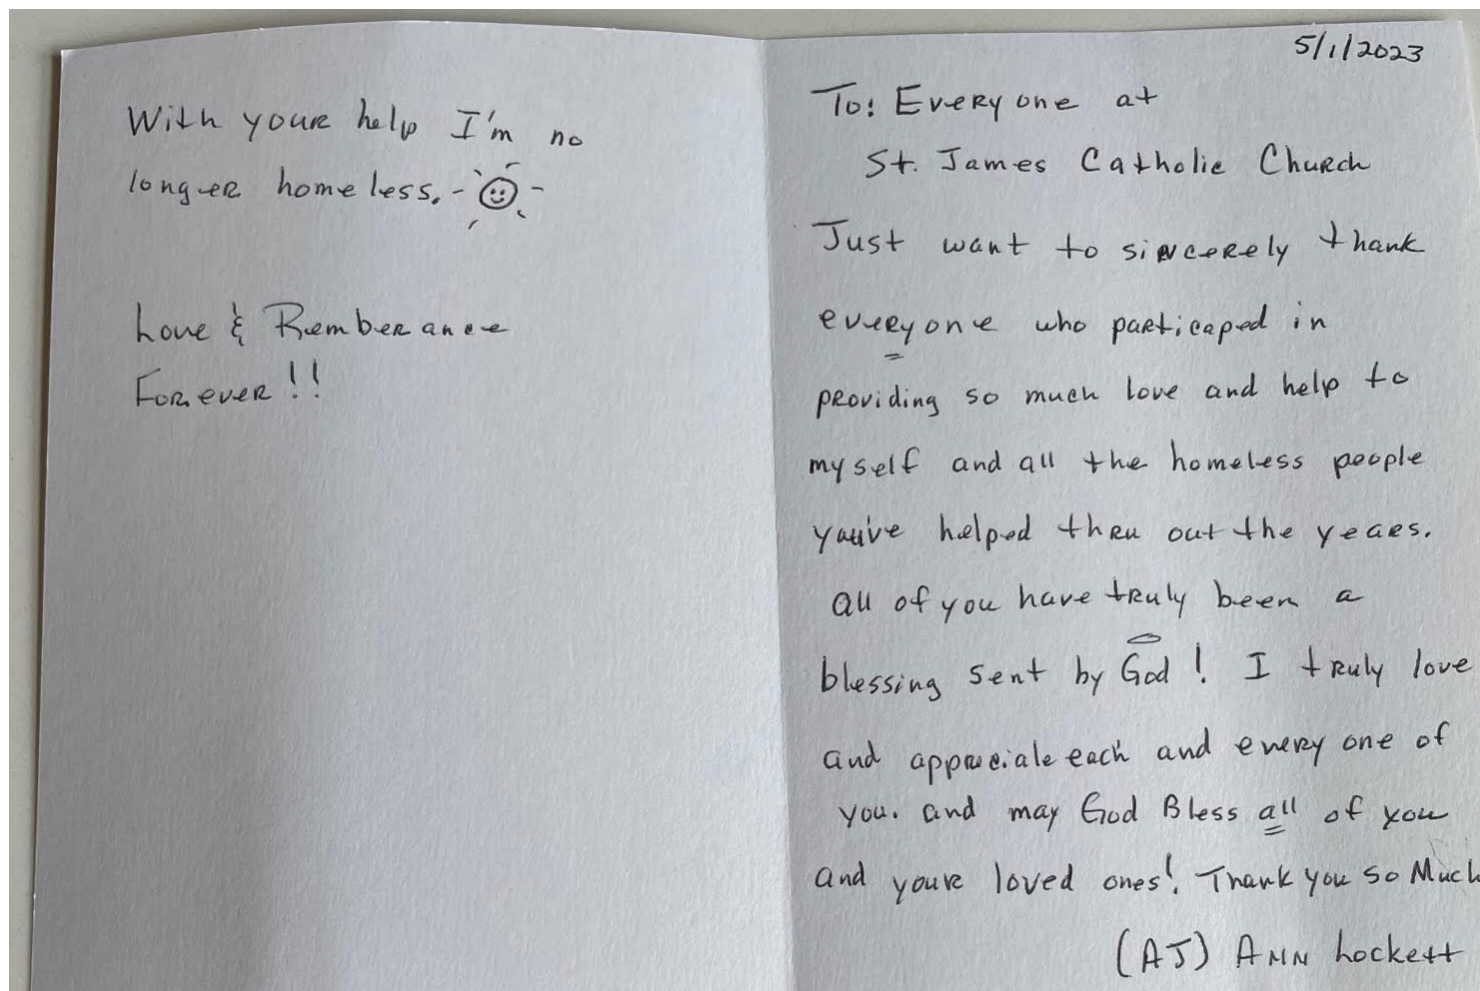 With your help I'm no
longer homeless.
Love & Remberance
Forever!!
5/1/2023
To: Everyone at
St. James Catholic Church
Just want to sincerely thank
everyone who particaped in
providing so much love and help to
myself and all the homeless people
you've helped thru out the years.
all of you have truly been a
blessing sent by God! I truly love
and appreciate each and every one of
you. and may God Bless all of you
and your loved ones! Thank you so Much
(AJ) ANN Lockett